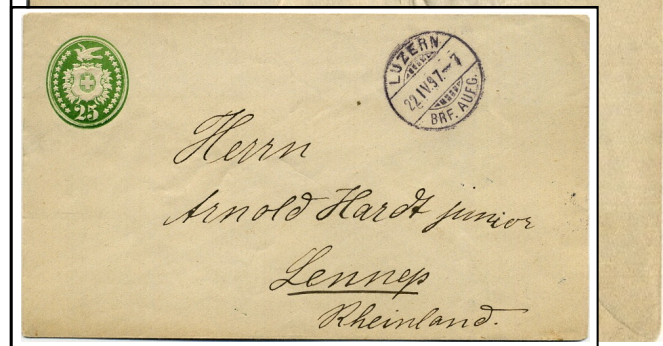 25
LUZERN
22.IV.97.–7
BRF. AUFG.
Herrn
Arnold Hardt junior
Lennep
Rheinland.